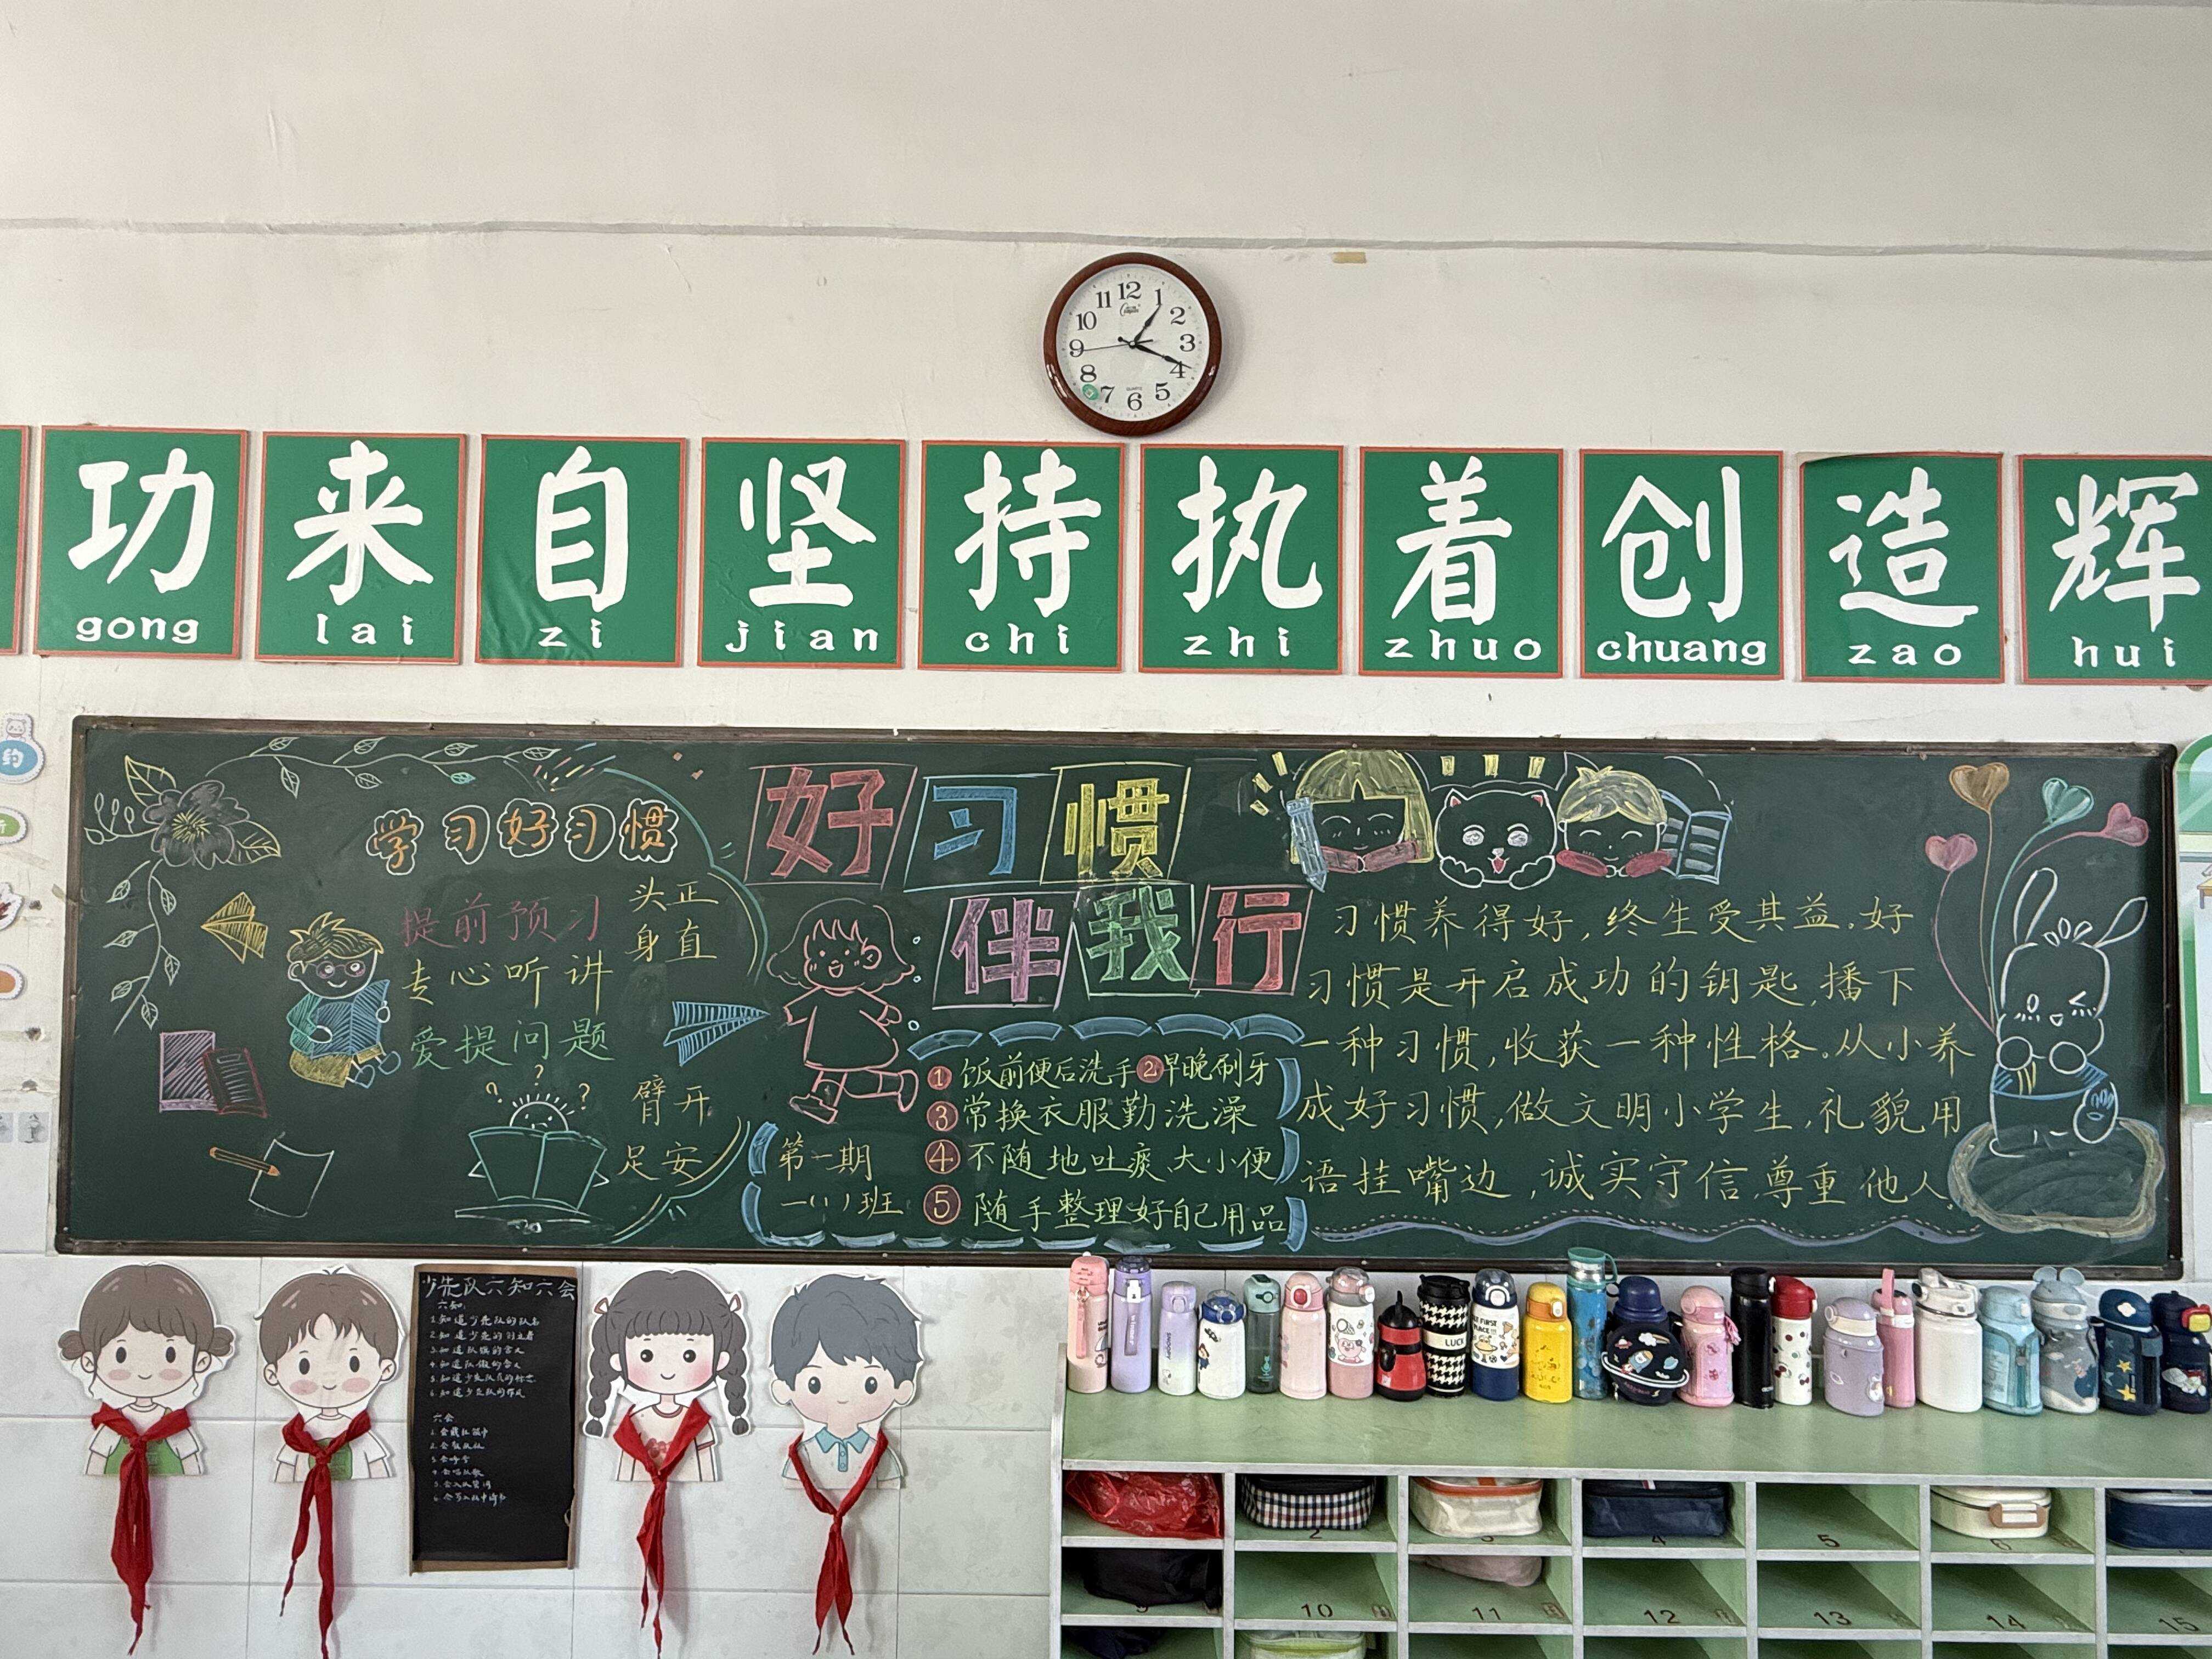 12
1
2
3
4
5
6
7
8
9
10
11
QUARTZ
功 来 自 坚 持 执 着 创 造 辉
gong lai zi jian chi zhi zhuo chuang zao hui
约
学习好习惯
提前预习
专心听讲
爱提问题
头正
身直
臂开
足安
? ? ?
好习惯
伴我行
①饭前便后洗手②早晚刷牙
③常换衣服勤洗澡
④不随地吐痰大小便
⑤随手整理好自己用品
第一期
一(1)班
习惯养得好,终生受其益。好
习惯是开启成功的钥匙,播下
一种习惯,收获一种性格。从小养
成好习惯,做文明小学生,礼貌用
语挂嘴边,诚实守信,尊重他人。
少先队六知六会
六知:
1.知道少先队的队名
2.知道少先队的创立者
3.知道队旗的含义
4.知道队徽的含义
5.知道少先队员的标志
6.知道少先队的作风
六会
1.会戴红领巾
2.会敬队礼
3.会呼号
4.会唱队歌
LUCK
2
3
4
5
6
9
10
11
12
13
14
15